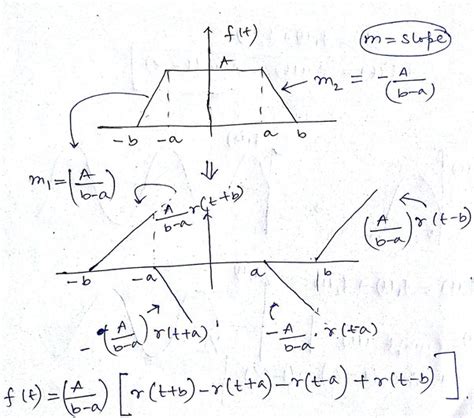 f(t)
m = slope
A
m₂ = -A/(b-a)
-b -a a b
⇓
m₁ = (A/b-a)
A/b-a r(t+b)
(A/b-a) r(t-b)
-b -a a b
-(A/b-a) r(t+a)
-A/b-a . r(t-a)
f(t) = (A/b-a) [r(t+b) - r(t+a) - r(t-a) + r(t-b)].